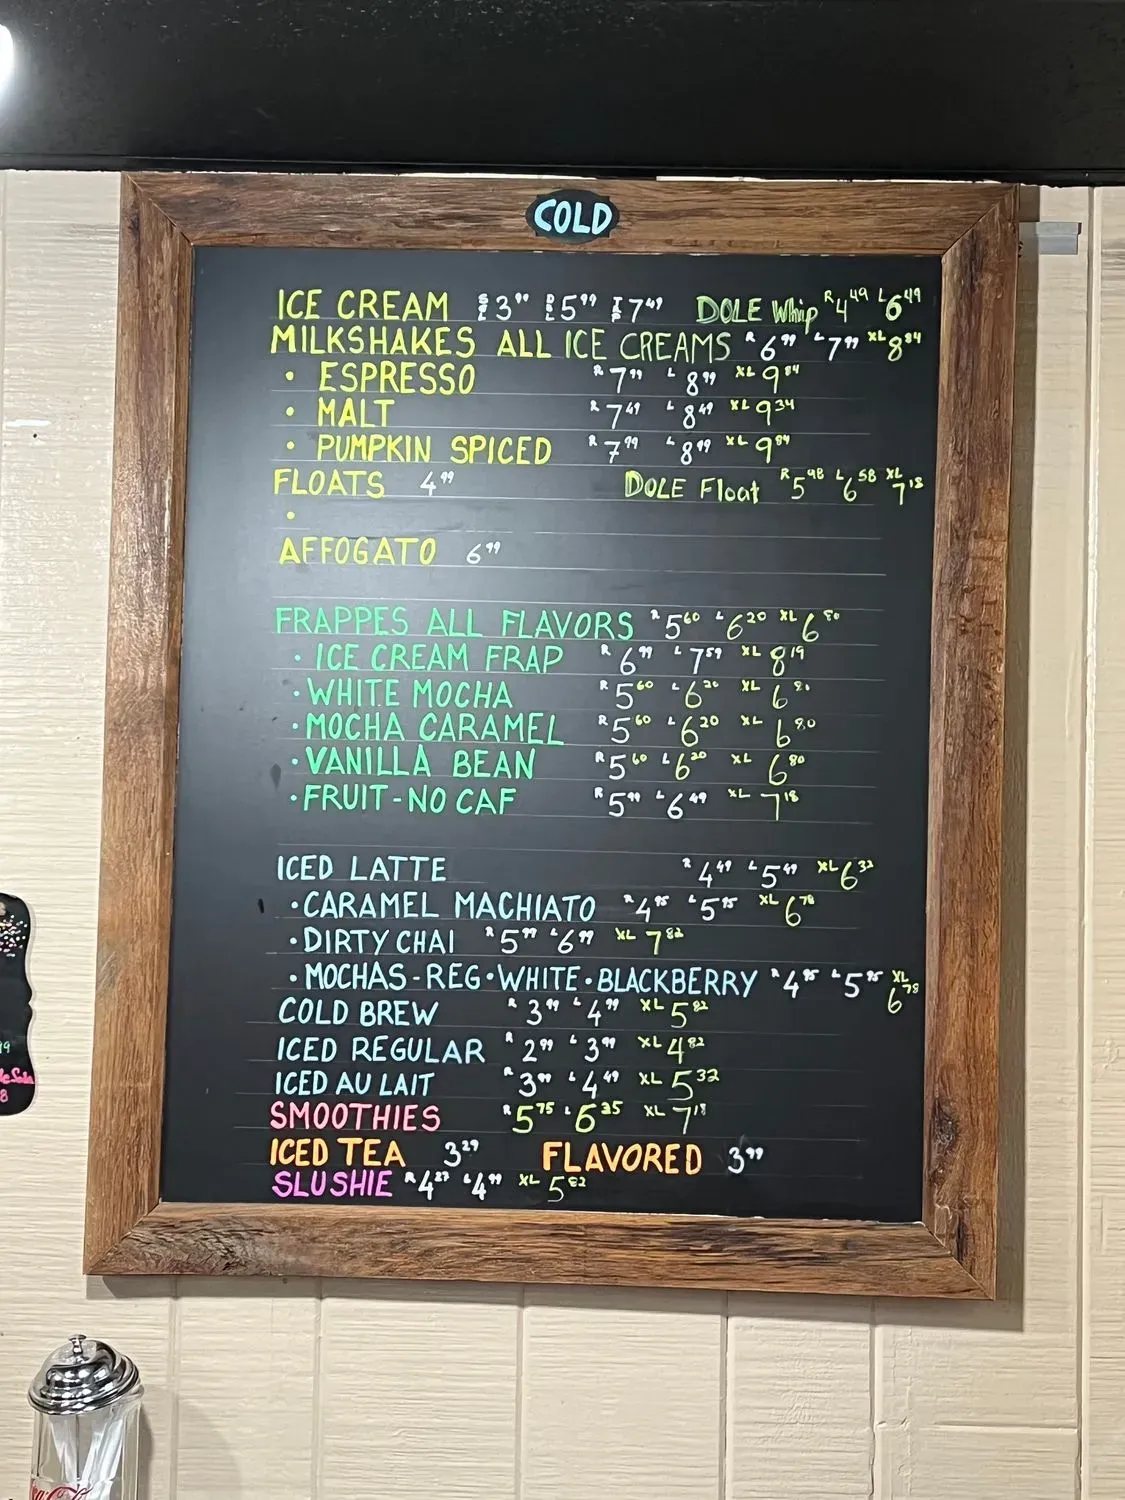 COLD
ICE CREAM SGL 3⁹⁹ DBL 5⁹⁹ TRP 7⁴⁹ DOLE Whip R 4⁴⁹ L 6⁴⁹
MILKSHAKES ALL ICE CREAMS R 6⁹⁹ L 7⁹⁹ XL 8⁸⁴
• ESPRESSO R 7⁹⁹ L 8⁹⁹ XL 9⁸⁴
• MALT R 7⁴⁹ L 8⁴⁹ XL 9³⁴
• PUMPKIN SPICED R 7⁹⁹ L 8⁹⁹ XL 9⁸⁴
FLOATS 4⁹⁹ DOLE Float R 5⁴⁸ L 6⁵⁸ XL 7¹⁸
•
AFFOGATO 6⁹⁹
FRAPPES ALL FLAVORS R 5⁶⁰ L 6²⁰ XL 6⁸⁰
• ICE CREAM FRAP R 6⁹⁹ L 7⁵⁹ XL 8¹⁹
• WHITE MOCHA R 5⁶⁰ L 6²⁰ XL 6⁸⁰
• MOCHA CARAMEL R 5⁶⁰ L 6²⁰ XL 6⁸⁰
• VANILLA BEAN R 5⁶⁰ L 6²⁰ XL 6⁸⁰
• FRUIT-NO CAF R 5⁹⁹ L 6⁴⁹ XL 7¹⁸
ICED LATTE R 4⁴⁹ L 5⁴⁹ XL 6³²
• CARAMEL MACHIATO R 4⁹⁵ L 5⁹⁵ XL 6⁷⁸
• DIRTY CHAI R 5⁹⁹ L 6⁹⁹ XL 7⁸²
• MOCHAS-REG•WHITE•BLACKBERRY R 4⁹⁵ L 5⁹⁵ XL 6⁷⁸
COLD BREW R 3⁹⁹ L 4⁹⁹ XL 5⁸²
ICED REGULAR R 2⁹⁹ L 3⁹⁹ XL 4⁸²
ICED AU LAIT R 3⁹⁹ L 4⁴⁹ XL 5³²
SMOOTHIES R 5⁷⁵ L 6³⁵ XL 7¹⁸
ICED TEA 3²⁹ FLAVORED 3⁹⁹
SLUSHIE R 4²⁷ L 4⁹⁹ XL 5⁸²